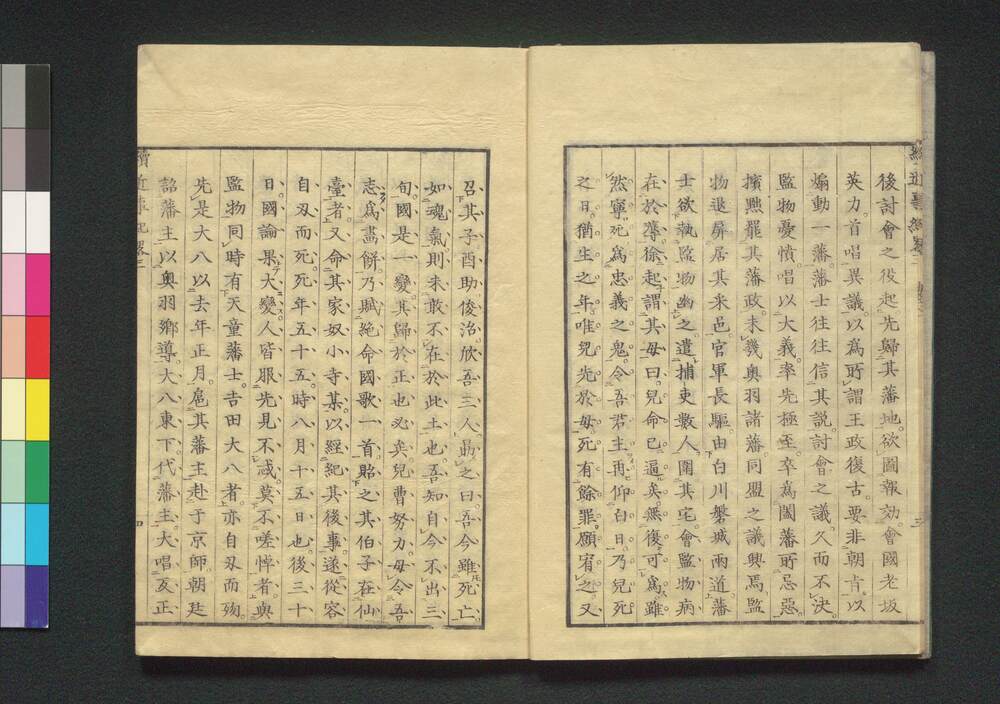 後討會之役起先歸其藩地欲圖報効會國老坂
英力首唱異議以爲所謂王政復古要非朝肯以
煽動一藩藩士往往信其説討會之議久而不決
監物憂憤唱以大義率先極至卒爲闔藩所忌惡
擯黜罷其藩政未幾奥羽諸藩同盟之議興焉監
物退屏居其采邑官軍長驅由白川磐城兩道藩
士欲執監物幽之遣捕吏數人圍其宅會監物病
在於蓐徐起謂其母曰兒命已逼矣無復可爲雖
然寧死爲忠義之鬼令吾君主再仰白日乃兒死
之日猶生之年唯兒先於母死有餘罪願宥之又
召其子酉助俊治欣吾三人勗之曰吾今雖死亡
如魂氣則未敢不在於此土也吾知自今不出三
旬國是一變其歸於正也必矣兒曹努力毋令吾
志爲畵餅乃賦絶命國歌一首貽之其伯子在仙
臺者又命其家奴小寺某以經紀其後事遂從容
自刃而死死年五十五時八月十五日也後三十
日國論果大變人皆服先見不惑莫不嗟悼者與
監物同時有天童藩士吉田大八者亦自刃而殉
先是大八以去年正月扈其藩主赴于京師朝廷
詔藩主以奥羽鄉導大八東下代藩主大唱反正
續近事紀畧三
四